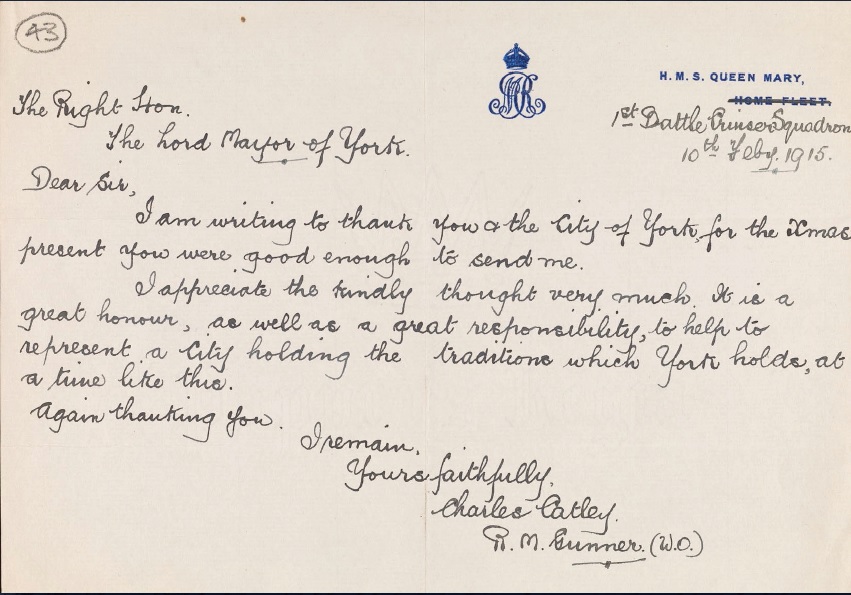 43
H.M.S. QUEEN MARY,
HOME FLEET.
1st Battle Cruiser Squadron
10th Feby. 1915.
The Right Hon.
The Lord Mayor of York.
Dear Sir,
I am writing to thank you & the City of York, for the Xmas
present you were good enough to send me.
I appreciate the kindly thought very much. It is a
great honour, as well as a great responsibility, to help to
represent a City holding the traditions which York holds, at
a time like this.
Again thanking you.
I remain,
Yours faithfully,
Charles Catley.
R. M. Gunner. (W.O.)